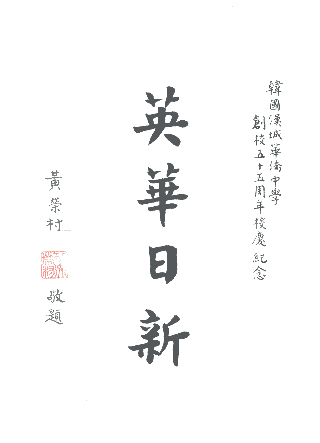 韓國漢城華僑中學
創校五十五周年校慶紀念
英華日新
黃榮村
敬題